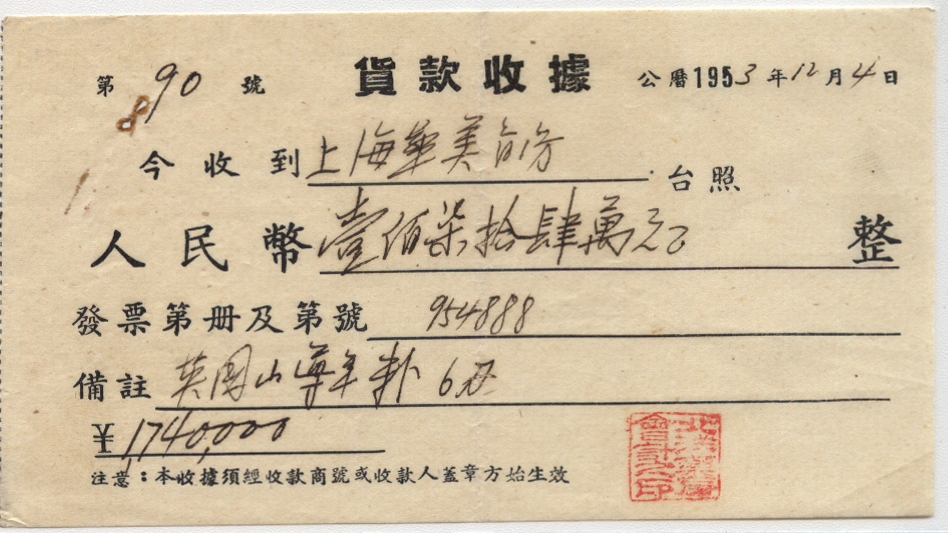 第 90 號 貨款收據 公曆1953年12月4日
今收到上海華美 台照
人民幣壹佰柒拾肆萬元 整
發票第册及第號 954888
備註 英國山
¥1740,000
注意：本收據須經收款商號或收款人蓋章方始生效
會計之印